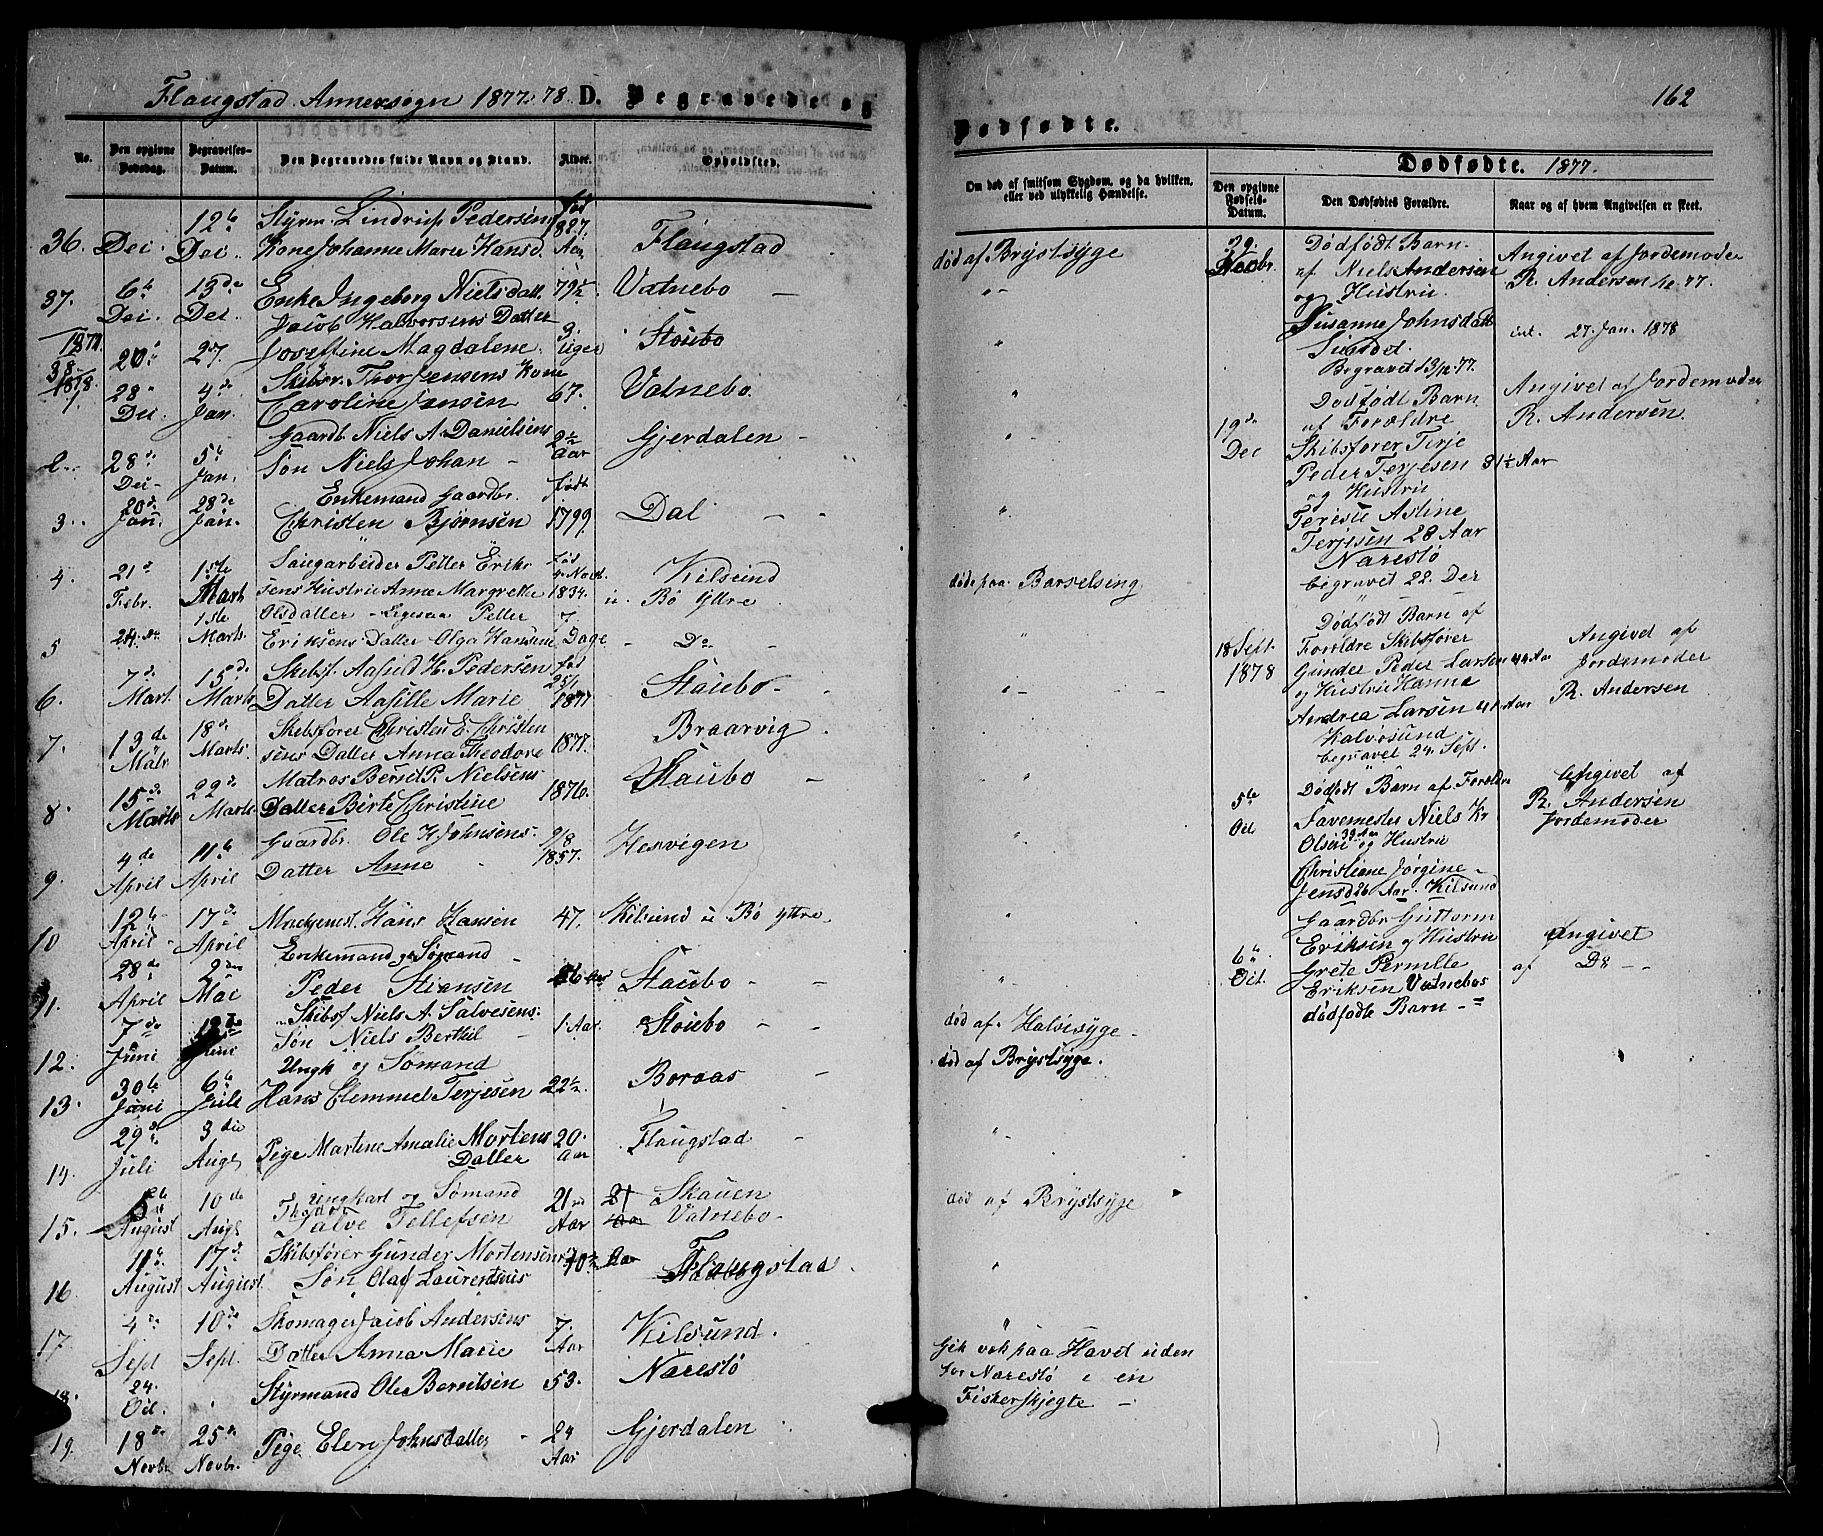 Flaugstad Annexsogn 1877-78. D. Begravede og
No.
Den opgivne Dødsdag.
Begravelses-Datum.
Den Begravedes fulde Navn og Stand.
Alder.
Opholdssted.
36. Dec 12te Dec Styrm. Pedersens
Kone Johanne Marie Hansd. 1827. Flaugstad
37. 6te Dec. 13de Dec Enke Ingeborg Nielsdatt. 79½ Vatnebo
1877 38. 20de 27. Jacob Halvorsens Datter
Josefine Magdalene 3 Uger Staubo
1878. 1 28 Dec 4de Jan. Skibsr. Thor Jensens Kone
Caroline Jensen 67. Vatnebo
2. 28de Dec. 5te Jan. Gaardb. Niels A. Danielsens
Søn Niels Johan 2½ Aar Gjerdalen
3. 20de Jan. 28de Jan. Enkemand Gaardbr.
Christen Bjørnsen født 1799. Dal
4. 21de Febr. 1ste Mart Saugarbeider Petter Erik-
sens Hustru Anne Margrethe 1834. Kilsund
Olsdatter u. Bø Yttre
5 24de 1ste Marts Petter
Eriksens Datter Olga Hansine 7 Dage Do
6. 7de Mart. 15de Marts Skibsf. H. Pedersen
Datter Marie 1877 Staubo
7. 13de Mar 18de Marts. Skibsfører Christen E. Christen
sens Datter Anna Theodore 1877. Braarvig
8. 15de Marts 22de Marts Matros Bernt P. Nielsens
Datter Birte Christine 1876. Staubo
9. 4de April 11te April Gaardbr. Ole K Johnsens
Datter Anne 9/8 1857. Hesvigen
10 12te April 17de April Hans Hansen 47. Kilsund u Bø Yttre
11. 28de April 2den Mai Enkemand og Sømand
Peder Stiansen Staubo
12. 7de Juni 12de Juni Skibsf Niels A. Salvesens
Søn Niels Berthil 1 Aar Staubo
13. 30te Juni 6te Juli Ungk og Sømand
Hans Clemmet Terjesen 22½ Boraas
14. 29de Juli 3die Aug. Pige Martine Amalie Mortens
Datter 20. Aar Flaugstad
15. 5te August 10de Aug. Ungkarl og Sømand
Salve Tellefsen 21 Aar Skauen
Vatnebo
16. 11te August 17de August Skibsfører Gunder Mortensens
Søn Olaf Laurentius Flaugstad
17. 4de Sept 10de Sept. Skomager Jacob Andersens
Datter Anna Marie 7. Aar Kilsund.
18. 24. Oct. Styrmand Ole Berntsen 53. Narestø
19. 18de Novbr 25de Novbr. Pige Elen Johnsdatter 24 Aar Gjerdalen
162
Dødfødte.
Om død af smitsom Sygdom, og da hvilken, eller ved ulykkelig Hændelse.
Dødfødte. 1877.
Den opgivne Fødsels-Datum.
Den Dødfødtes Forældre.
Naar og af hvem Angivelsen er skeet.
død af Brystsyge
døde paa Barselseng
død af Halssyge
død af Brystsyge.
død af Brystsyge
Gik væk paa Havet uden
for Narestø i en
Fiskerskjøgte
29. Novbr. Dødfødt Barn
af Niels Andersen
og Hustru
Susanne Johnsdatt
Begravet 13/12 77.
Angivet af Jordemoder
R. Andersen
27. Jan. 1878
19de Dec Dødfødt Barn
af Forældre
Skibsfører Terje
Peder Terjesen 31½ Aar
og Hustru
Terese Astine
Terjesen 28 Aar
Narestø
begravet 22. Dec
Angivet af Jordemoder
R. Andersen
18 Sept. 1878 Dødfødt Barn af
Forældre Skibsfører
Gunder Peder Larsen 44 Aar
og Hustru Hanna
Andrea Larsen 41 Aar
Kalvøsund
begravet 24. Sept.
Angivet af
Jordemoder
R. Andersen
5te Oct Dødfødt Barn af Forældre
Niels Kr
Olsen 39 Aar og Hustru
Christiane Jørgine
Jensd 26 Aar. Kilsund
Angivet af
R. Andersen
Jordemoder
6te Oct. Gaardbr Guttorm
Eriksen og Hustru
Grete Pernille
Eriksen Vatnebos
dødfødte Barn
Angivet
af Do